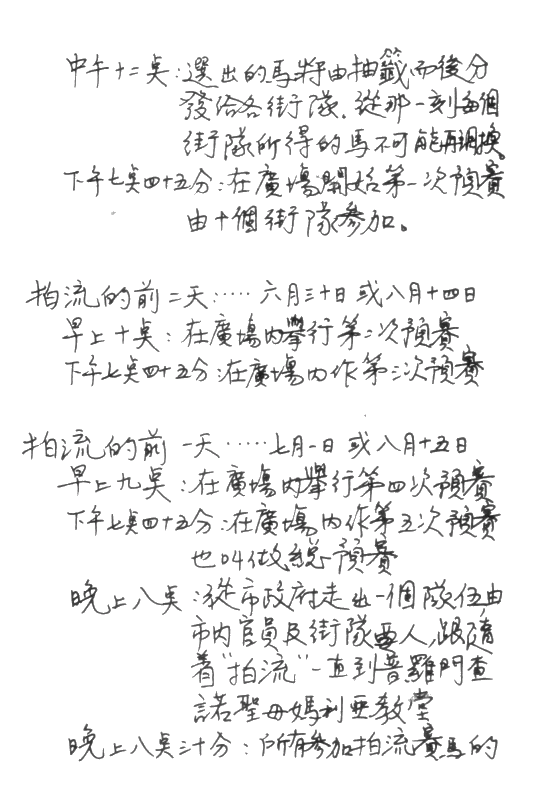 中午十二臭:選出的馬將由抽籤而後分
發給各街隊.從那一刻每個
街隊所得的馬不可能再調換。
下午七臭四十五分:在廣場開始第一次預賽
由十個街隊參加。
拍流的前二天‥‥‥六月三十日或八月十四日
早上十臭:在廣場內舉行第二次預賽
下午七臭四十五分:在廣場內作第三次預賽
拍流的前一天‥‥‥七月一日或八月十五日
早上九臭:在廣場內舉行第四次預賽
下午七臭四十五分:在廣場內作第五次預賽
也叫做總預賽
晚上八臭:從市政府走出一個隊伍由
市內官員及街隊 人,跟隨
着"拍流"一直到普羅門查
諾聖母媽利亞教堂
晚上八臭三十分:所有參加拍流賽馬的